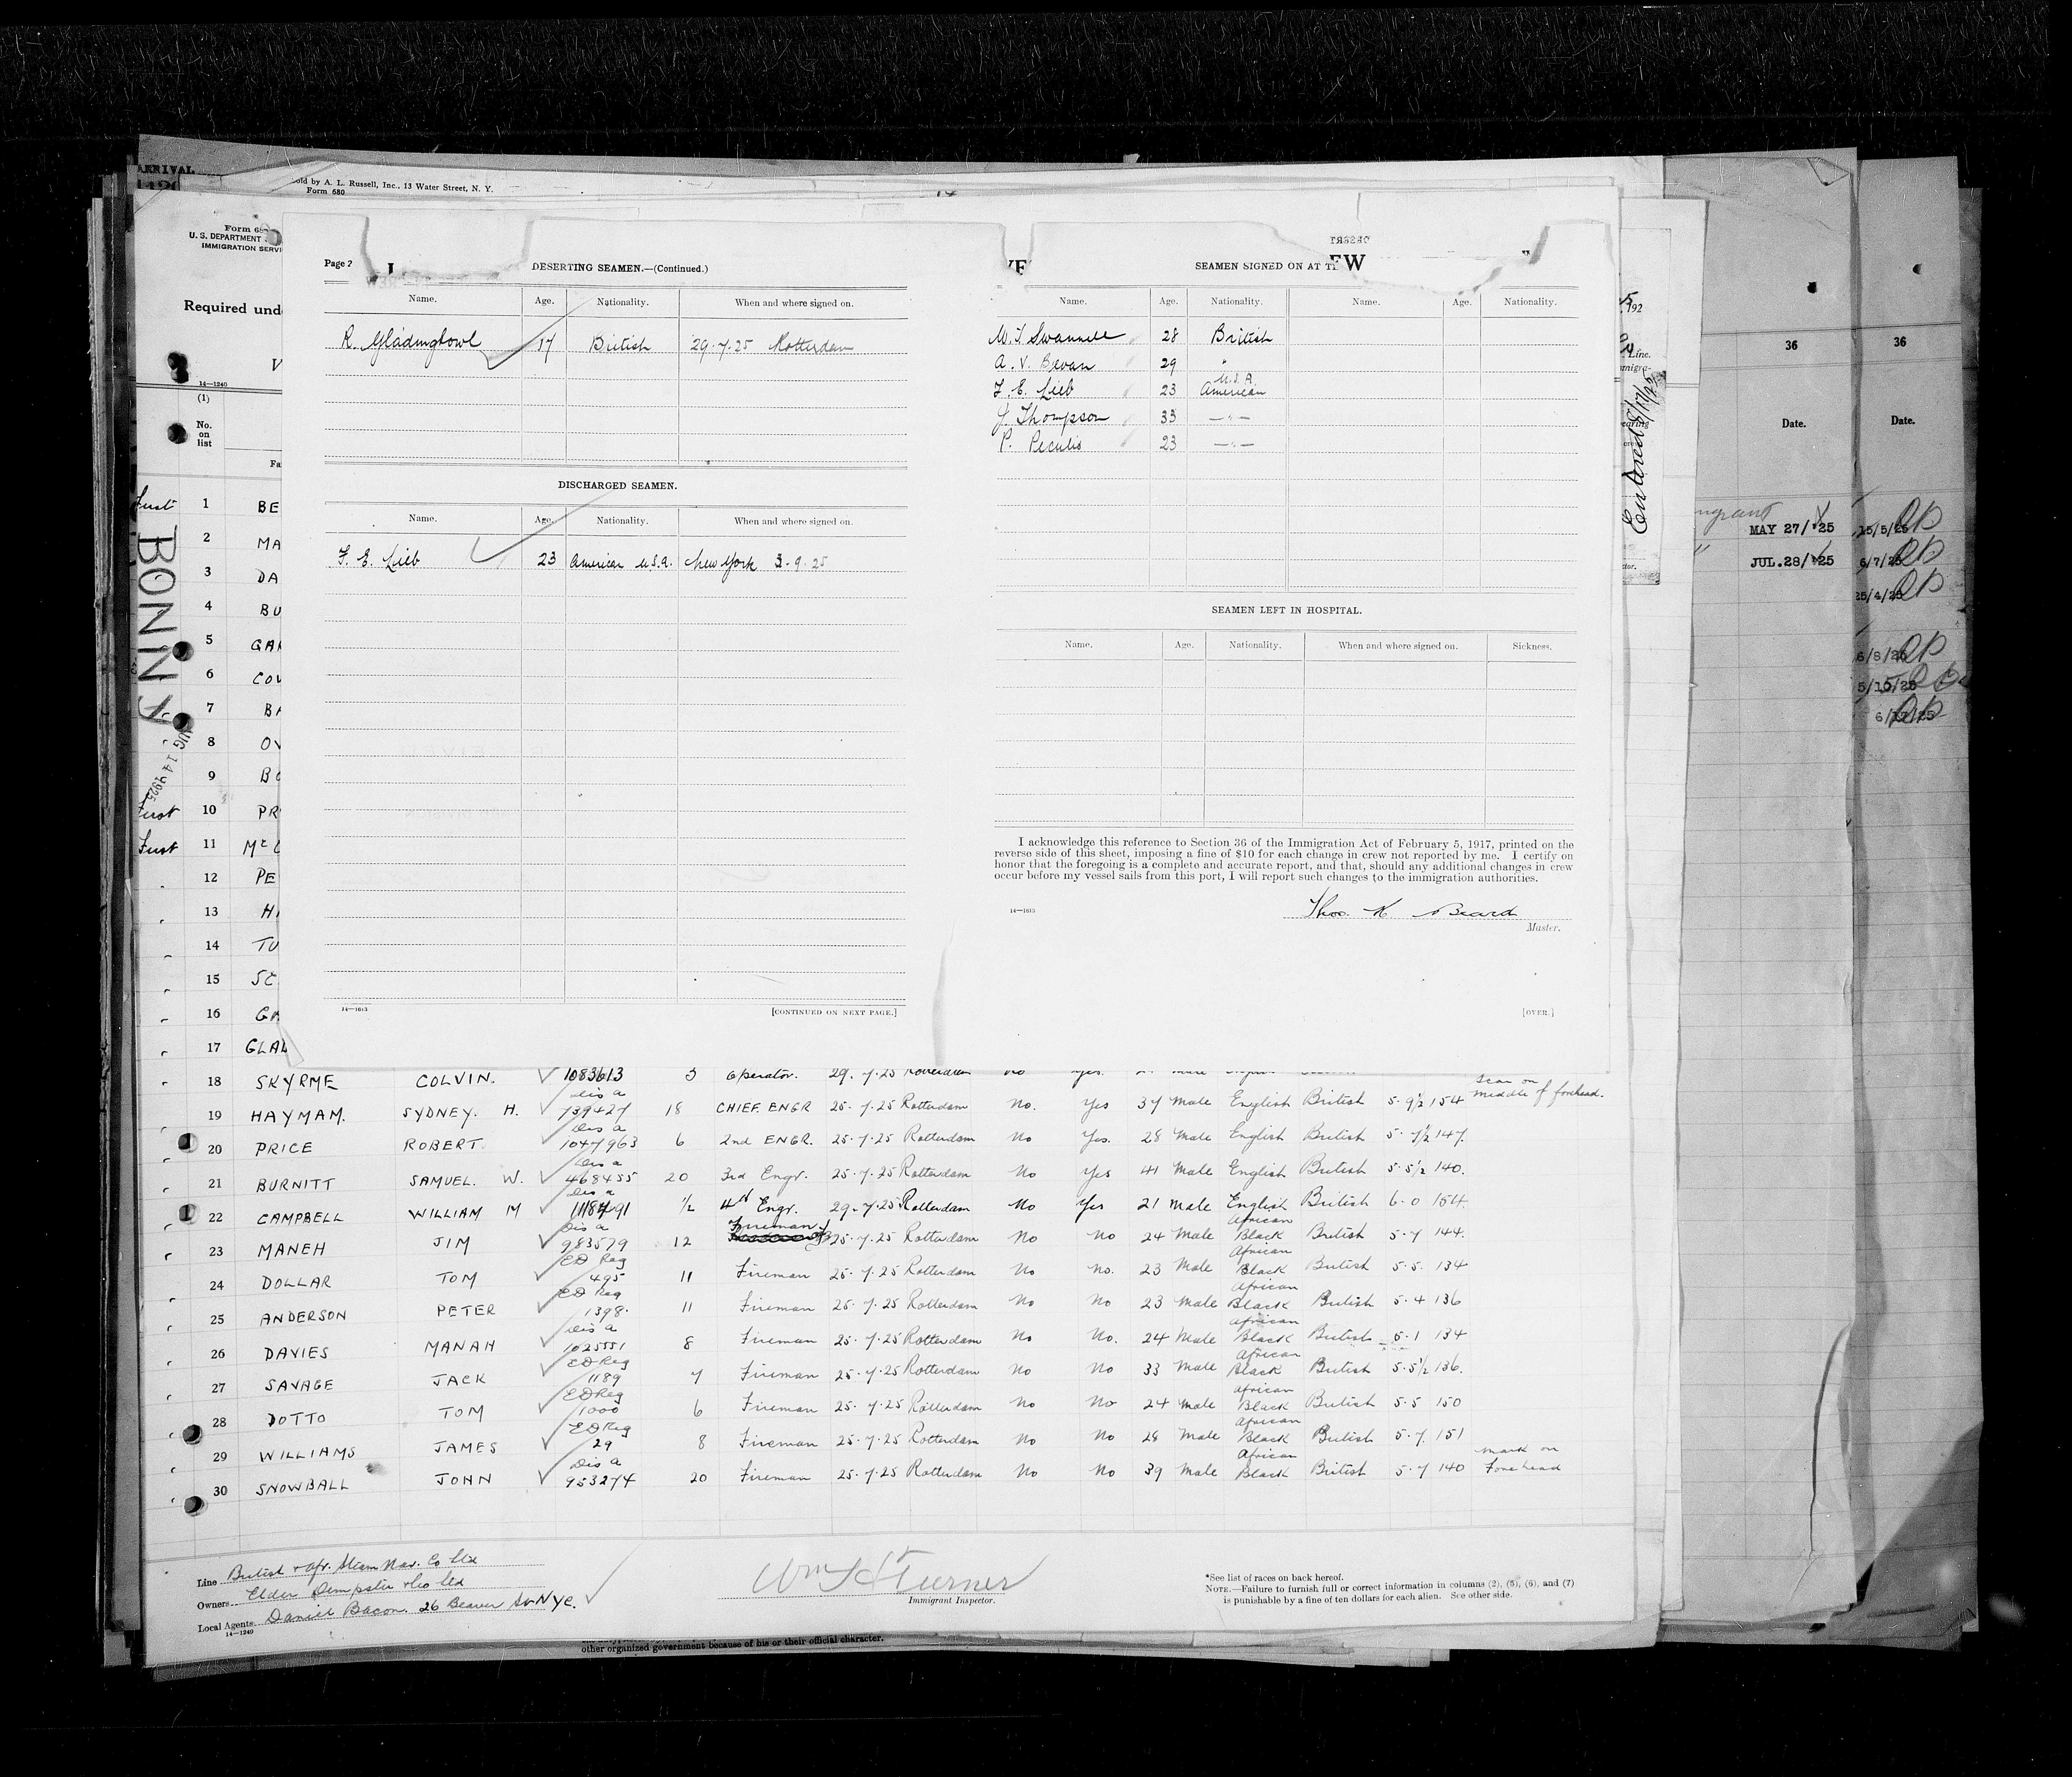 ARRIVAL
Sold by A. L. Russell, Inc., 13 Water Street, N. Y.
Form 680
U. S. DEPARTMENT
IMMIGRATION SERVI
Required und
14—1240
(1)
No.
on
list
Fa
BONNY
AUG 14 1925
Page 2
DESERTING SEAMEN.—(Continued.)
Name. Age. Nationality. When and where signed on.
R. Gladingbowl 17 British 29.7.25 Rotterdam
DISCHARGED SEAMEN.
Name. Age. Nationality. When and where signed on.
F. E. Lieb 23 American U.S.A. New York 3.9.25
14—1613
[CONTINUED ON NEXT PAGE.]
EW
SEAMEN SIGNED ON AT T
Name. Age. Nationality. Name. Age. Nationality.
W. J. Swannell 28 British
A. V. Bevan 29 "
F. E. Lieb 23 U.S.A. American
J. Thompson 33 — " —
P. Peculis 23 — " —
SEAMEN LEFT IN HOSPITAL.
Name. Age. Nationality. When and where signed on. Sickness.
I acknowledge this reference to Section 36 of the Immigration Act of February 5, 1917, printed on the
reverse side of this sheet, imposing a fine of $10 for each change in crew not reported by me. I certify on
honor that the foregoing is a complete and accurate report, and that, should any additional changes in crew
occur before my vessel sails from this port, I will report such changes to the immigration authorities.
14—1613
Thos. K Beard
Master.
[OVER.]
192
Line.
migra-
Entered 8/17/25
36
Date.
MAY 27/'25
JUL.28/'25
36
Date.
15/5/25
6/7/25
25/4/25
6/8/25
5/15/25
6/12/25
First 1 BE
2 MA
3 DA
4 BU
5 GAR
6 COW
7 BA
8 OV
9 BO
First 10 PR
First 11 McC
12 PE
13 HA
14 TU
15 SC
16 GA
17 GLAD
18 SKYRME COLVIN. 1083613 3 Operator. 29.7.25 Rotterdam No Yes. scar on middle of forehead.
19 HAYMAM. SYDNEY. H. Dis a 739427 18 CHIEF ENGR 25.7.25 Rotterdam No. Yes 37 Male English British 5-9½ 154
20 PRICE ROBERT. Dis a 1047963 6 2nd ENGR. 25.7.25 Rotterdam No Yes. 28 Male English British 5-7½ 147.
21 BURNITT SAMUEL. W. Dis a 468455 20 3rd Engr. 25.7.25 Rotterdam No Yes 41 Male English British 5-5½ 140.
22 CAMPBELL WILLIAM M Dis a 1118491 ½ 4th Engr. 29.7.25 Rotterdam No Yes 21 Male English British 6-0 154.
23 MANEH JIM Dis a 983579 12 Fireman 25.7.25 Rotterdam No No 24 Male African Black British 5-7 144.
24 DOLLAR TOM ED Reg 495 11 Fireman 25.7.25 Rotterdam No No. 23 Male African Black British 5-5. 134
25 ANDERSON PETER ED Reg 1398. 11 Fireman 25.7.25 Rotterdam No No 23 Male African Black British 5-4 136
26 DAVIES MANAH Dis a 1025551 8 Fireman 25.7.25 Rotterdam No No. 24 Male African Black British 5-1 134
27 SAVAGE JACK ED Reg 1189 7 Fireman 25.7.25 Rotterdam No No 33 Male African Black British 5-5½ 136.
28 DOTTO TOM ED Reg 1000 6 Fireman 25.7.25 Rotterdam No No 24 Male African Black British 5-5 150
29 WILLIAMS JAMES ED Reg 29 8 Fireman 25.7.25 Rotterdam No No 28 Male African Black British 5-7. 151
30 SNOWBALL JOHN Dis a 953274 20 Fireman 25.7.25 Rotterdam No No 39 Male African Black British 5-7 140 mark on Forehead
Line British & Afr. Steam Nav. Co Ltd
Owners Elder Dempster & Co Ltd
Local Agents Daniel Bacon. 26 Beaver St. N.Y.C.
14—1240
Wm H Turner
Immigrant Inspector.
*See list of races on back hereof.
NOTE.—Failure to furnish full or correct information in columns (2), (5), (6), and (7)
is punishable by a fine of ten dollars for each alien. See other side.
other organized government because of his or their official character.